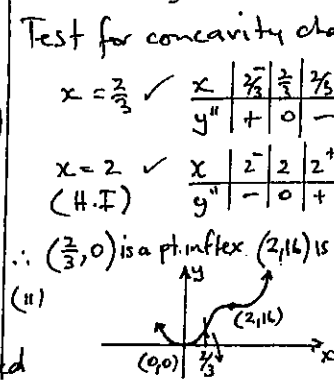 Test for concavity
x = 2/3 ✓ x | 2/3⁻ | 2/3 | 2/3
y" | + | 0 | −
x = 2 ✓ x | 2⁻ | 2 | 2⁺
(H.I) y" | − | 0 | +
∴ (2/3, 0) is a pt. inflex. (2,16) is
(ii) y
(2,16)
(0,0) 2/3 x